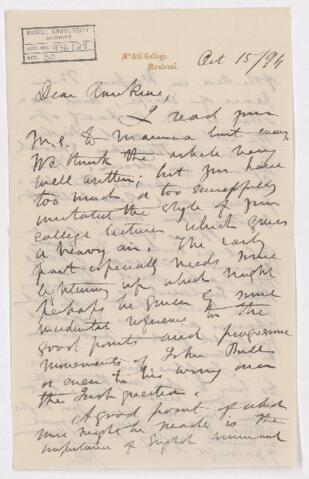 McGILL UNIVERSITY
ARCHIVES
ACC. NO. 976/128
REF. 30
McGill College,
Montreal.
Oct 15/94
Dear Rankine,
I read your
M.S. to Mamma last
We think the article very
well written; but you have
too much or too
imitated the style of your
college lectures which gives
a heavy air. The early
part especially needs some
lightening up which might
perhaps be given by some
incidental reference to the
good points and progressive
movements of John Bull
or even to his wrong over
the Irish question.
A good point of which
more might be made is the
importance of English